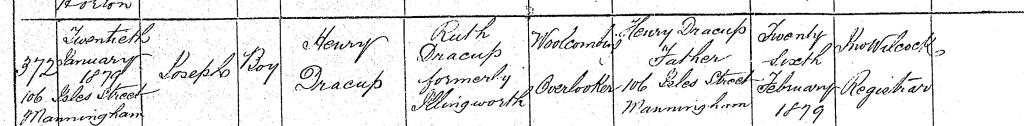 Horton
372
Twentieth
January
1879
106 Isles Street
Manningham
Joseph
Boy
Henry
Dracup
Ruth
Dracup
formerly
Illingworth
Woolcombing
Overlooker
Henry Dracup
Father
106 Isles Street
Manningham
Twenty
Sixth
February
1879
Jno Wilcock
Registrar